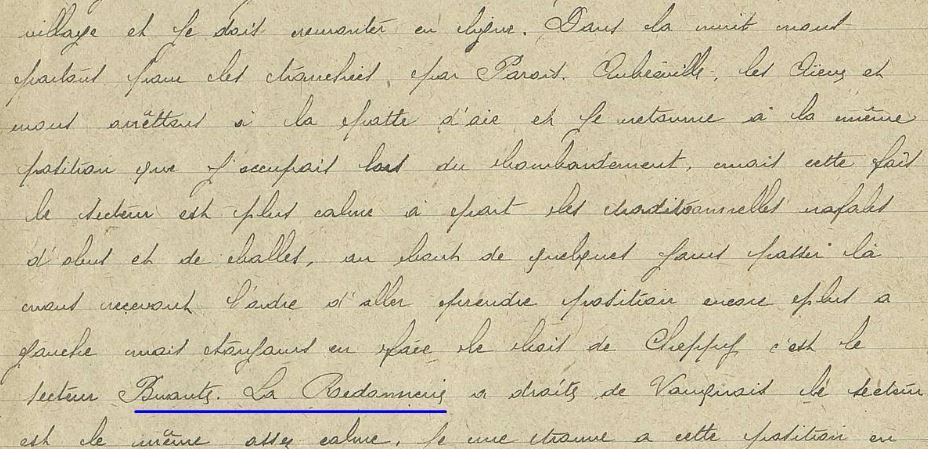 village et je dois remonter en ligne. Dans la nuit nous
partons pour les tranchées, par Parois. Aubréville, les et
nous arrêttons à la patte d'oie et je retourne à la même
position que j'occupais lors du bombardement, mais cette fois
le secteur est plus calme à part les traditionnelles rafales
d'obus et de balles, au bout de quelques jours passer là
nous recevons l'ordre d'aller prendre position encore plus a
gauche mais toujours en face le bois de Cheppy c'est le
secteur Buante. La a droite de Vauquois le secteur
est le même assez calme. Je me trouve a cette position en